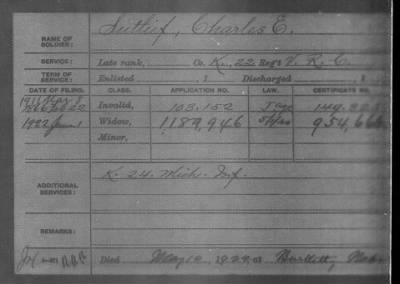 NAME OF SOLDIER: Sutlief, Charles E.
SERVICE: Late rank, Co. K., 22 Reg't V. R. C.
TERM OF SERVICE: Enlisted , 1 Discharged , 1
DATE OF FILING. CLASS. APPLICATION NO. LAW. CERTIFICATE NO.
Invalid, 103,152
1922 June 1 Widow, 1189,946 954,666
Minor,
ADDITIONAL SERVICES: K. 24. Mich. Inf.
REMARKS:
Died 1922 at Bartlett,